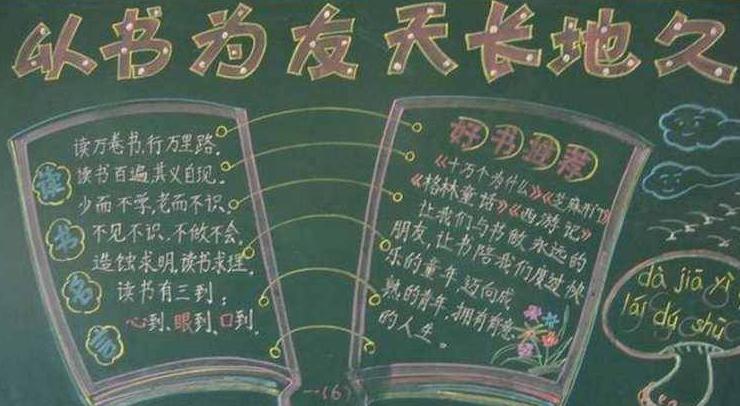 以书为友天长地久
读书名言
读万卷书,行万里路。
读书百遍,其义自现。
少而不学,老而不识。
不见不识,不做不会。
造蚀求明,读书求理。
读书有三到:
心到、眼到、口到。
好书推荐
《十万个为什么》《芝麻开门》
《格林童话》《西游记》
让我们与书做永远的
朋友,让书陪我们度过快
乐的童年,迈向成
熟的青年,拥有
的人生。
一(6)
dà jiā yì
lái dú shū